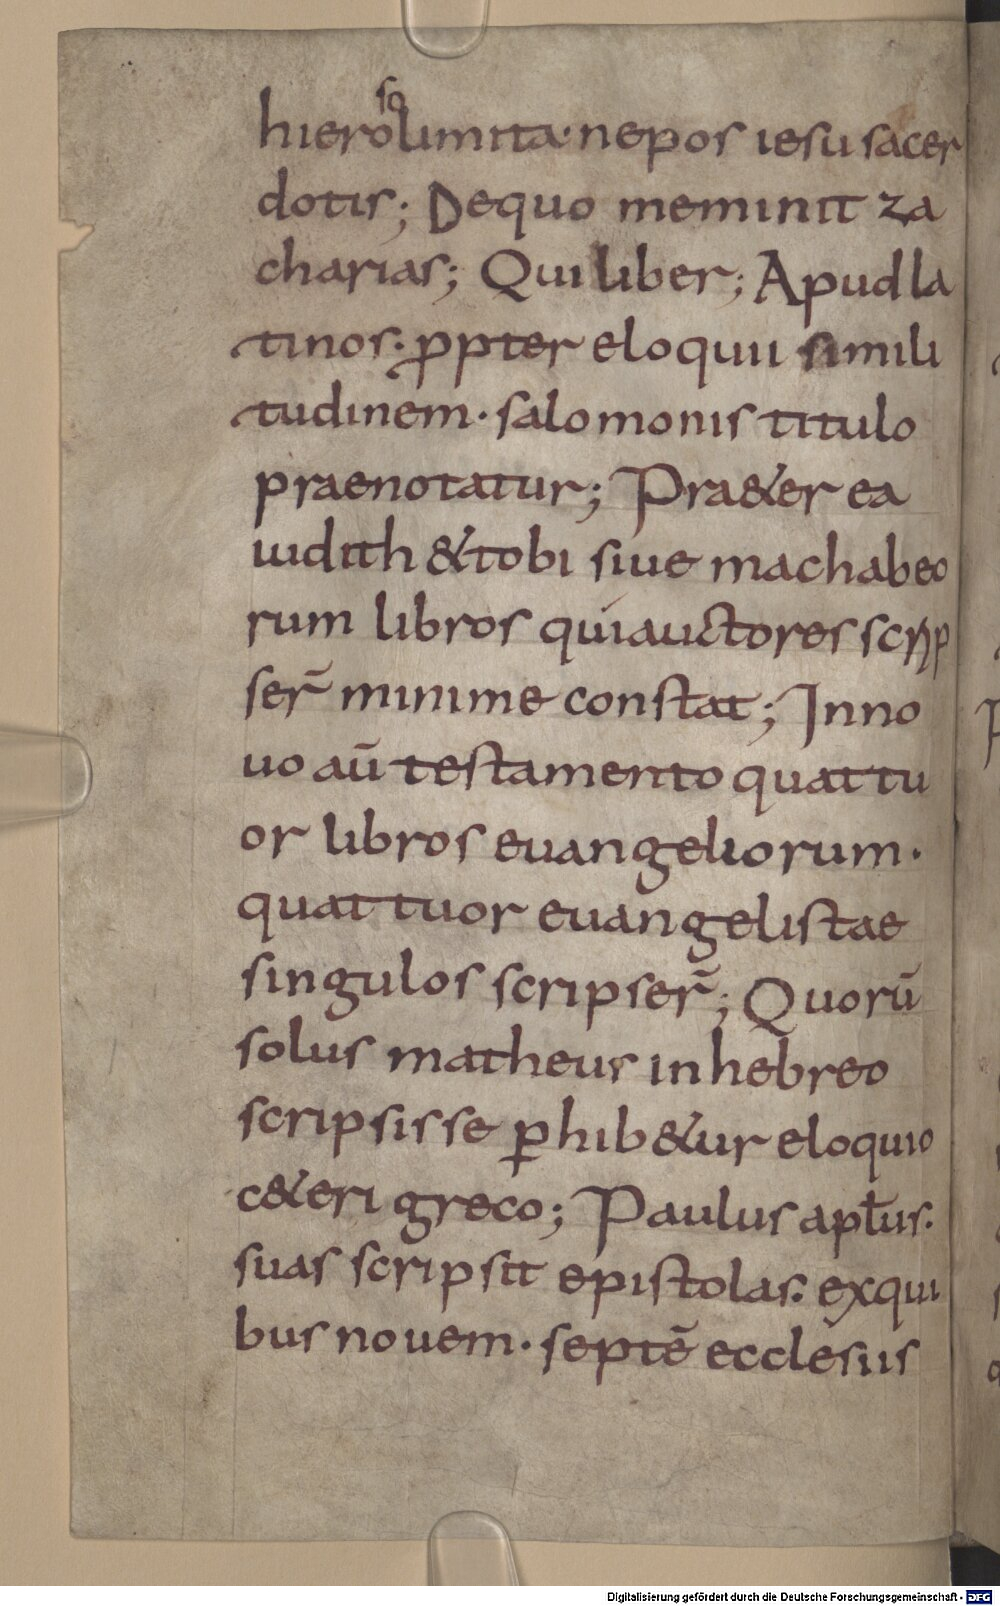 hierosolimita· nepos iesu sacer
dotis; De quo meminit za
charias; Qui liber; Apud la
tinos· ꝓpter eloquii simili
tudinem· salomonis titulo
praenotatur; Praet&er ea
iudith & tobi siue machabeo
rum libros qui auctores scrip
ser̃ minime constat; In no
uo aū testamento quattu
or libros euangeliorum·
quattuor euangelistae
singulos scripser̃; Quorū
solus matheus in hebreo
scripsisse ꝑhib&ur eloquio
c&eri greco; Paulus apłus·
suas scripsit epistolas· ex qui
bus nouem· septē ecclesiis
Digitalisierung gefördert durch die Deutsche Forschungsgemeinschaft - DFG